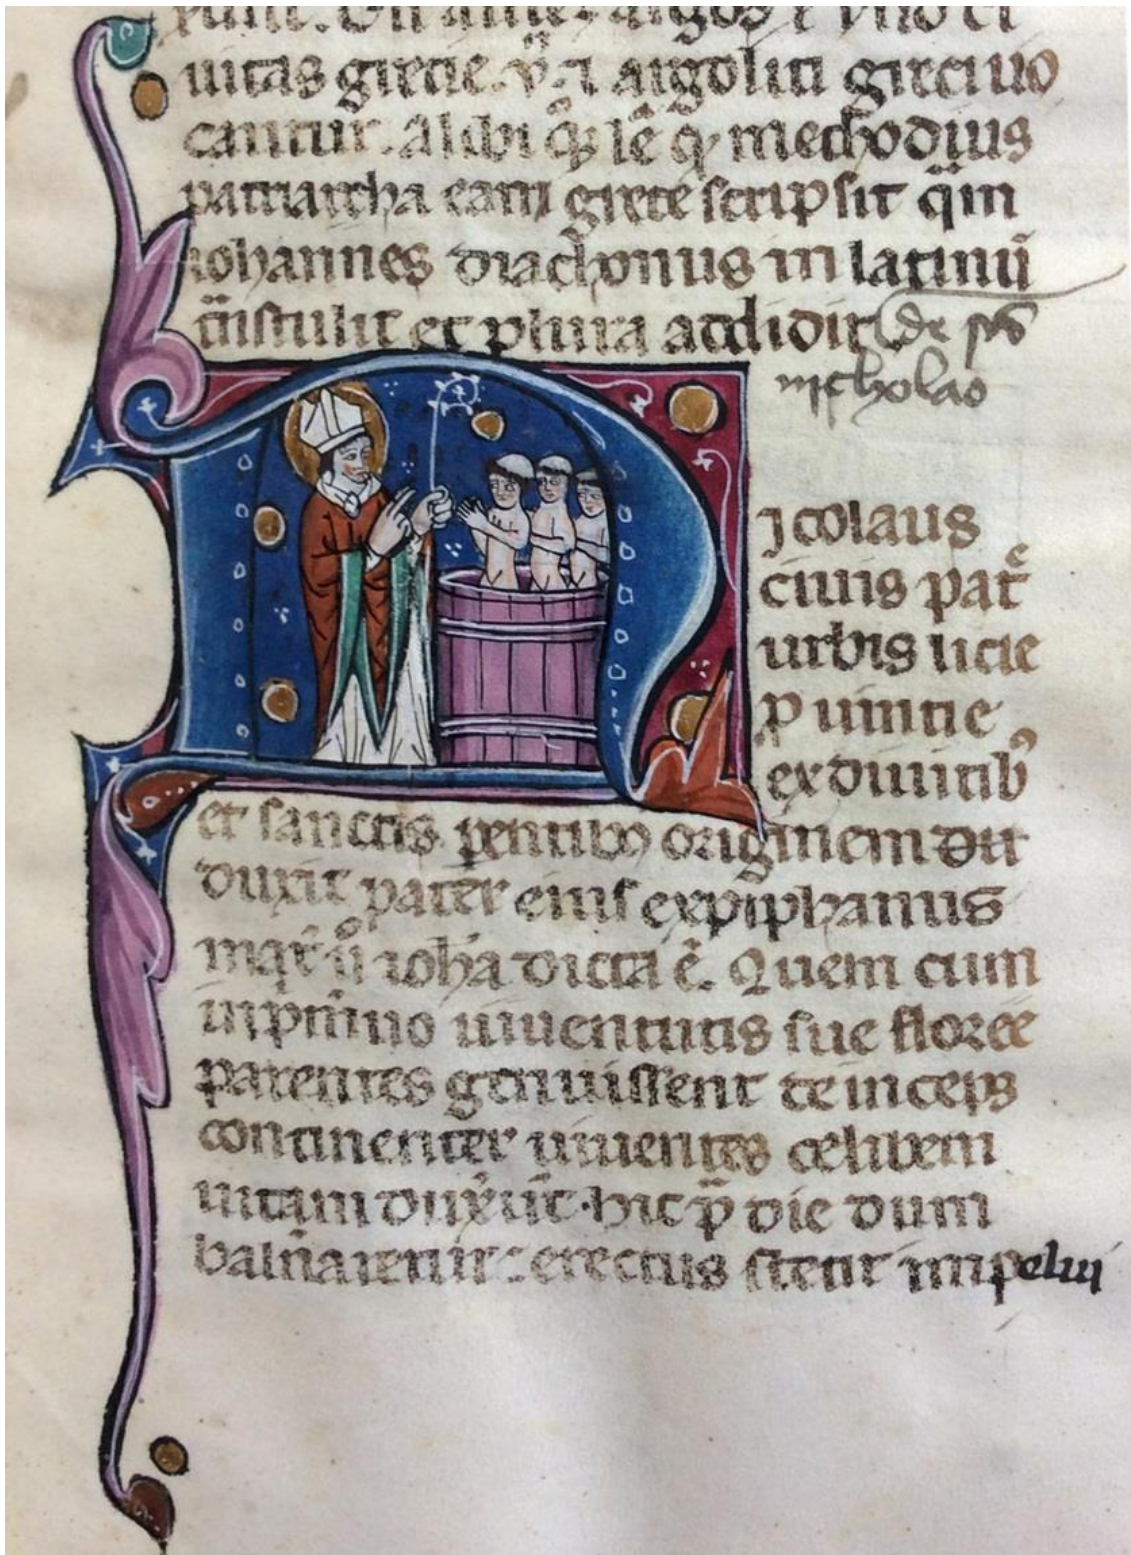 uitas grecie. v̄. ⁊ argoliti greci uo
cantur. alibi q̊ȝ lē q̵ methodius
patriarcha eam grece scripsit q̄m
iohannes diachonus in latinū
t̄nstulit et plura addidit de sc̄o
nicholao
Nicolaus
ciuis pat̄
urbis licie
ꝓuintie
ex diuitibꝰ
et sanctis ꝑentibꝫ originem
duxit pater eius expiphanus
mat̄ ů ioh̄a dicta ē. Quem cum
in pͥmo iuuentutis sue flore
parentes genuissent deinceps
continenter uiuentes celibem
uitam duxer̄t. hic pͥ die dum
balnaretur erectus stetit in pelui